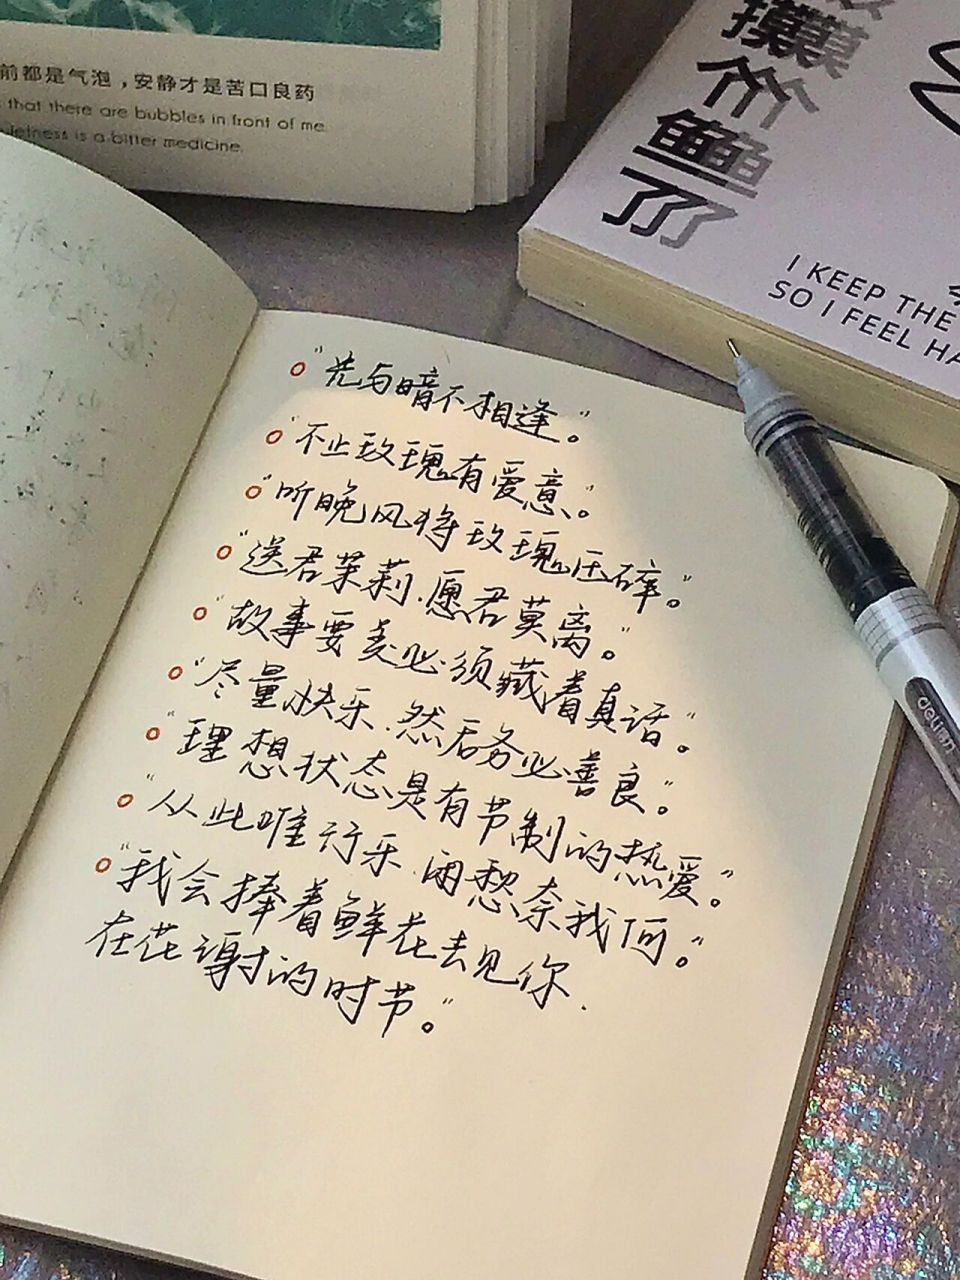 前都是气泡，安静才是苦口良药
that there are bubbles in front of me
is a bitter medicine.
摸个鱼了
I KEEP THE
SO I FEEL HA
"光与暗不相逢。"
"不止玫瑰有爱意。"
"听晚风将玫瑰压碎。"
"送君茉莉.愿君莫离。"
"故事要美必须藏着真话。"
"尽量快乐.然后务必善良。"
"理想状态是有节制的热爱。"
"从此唯行乐.闲愁奈我何。"
"我会捧着鲜花去见你.
在花谢的时节。"
deli得力